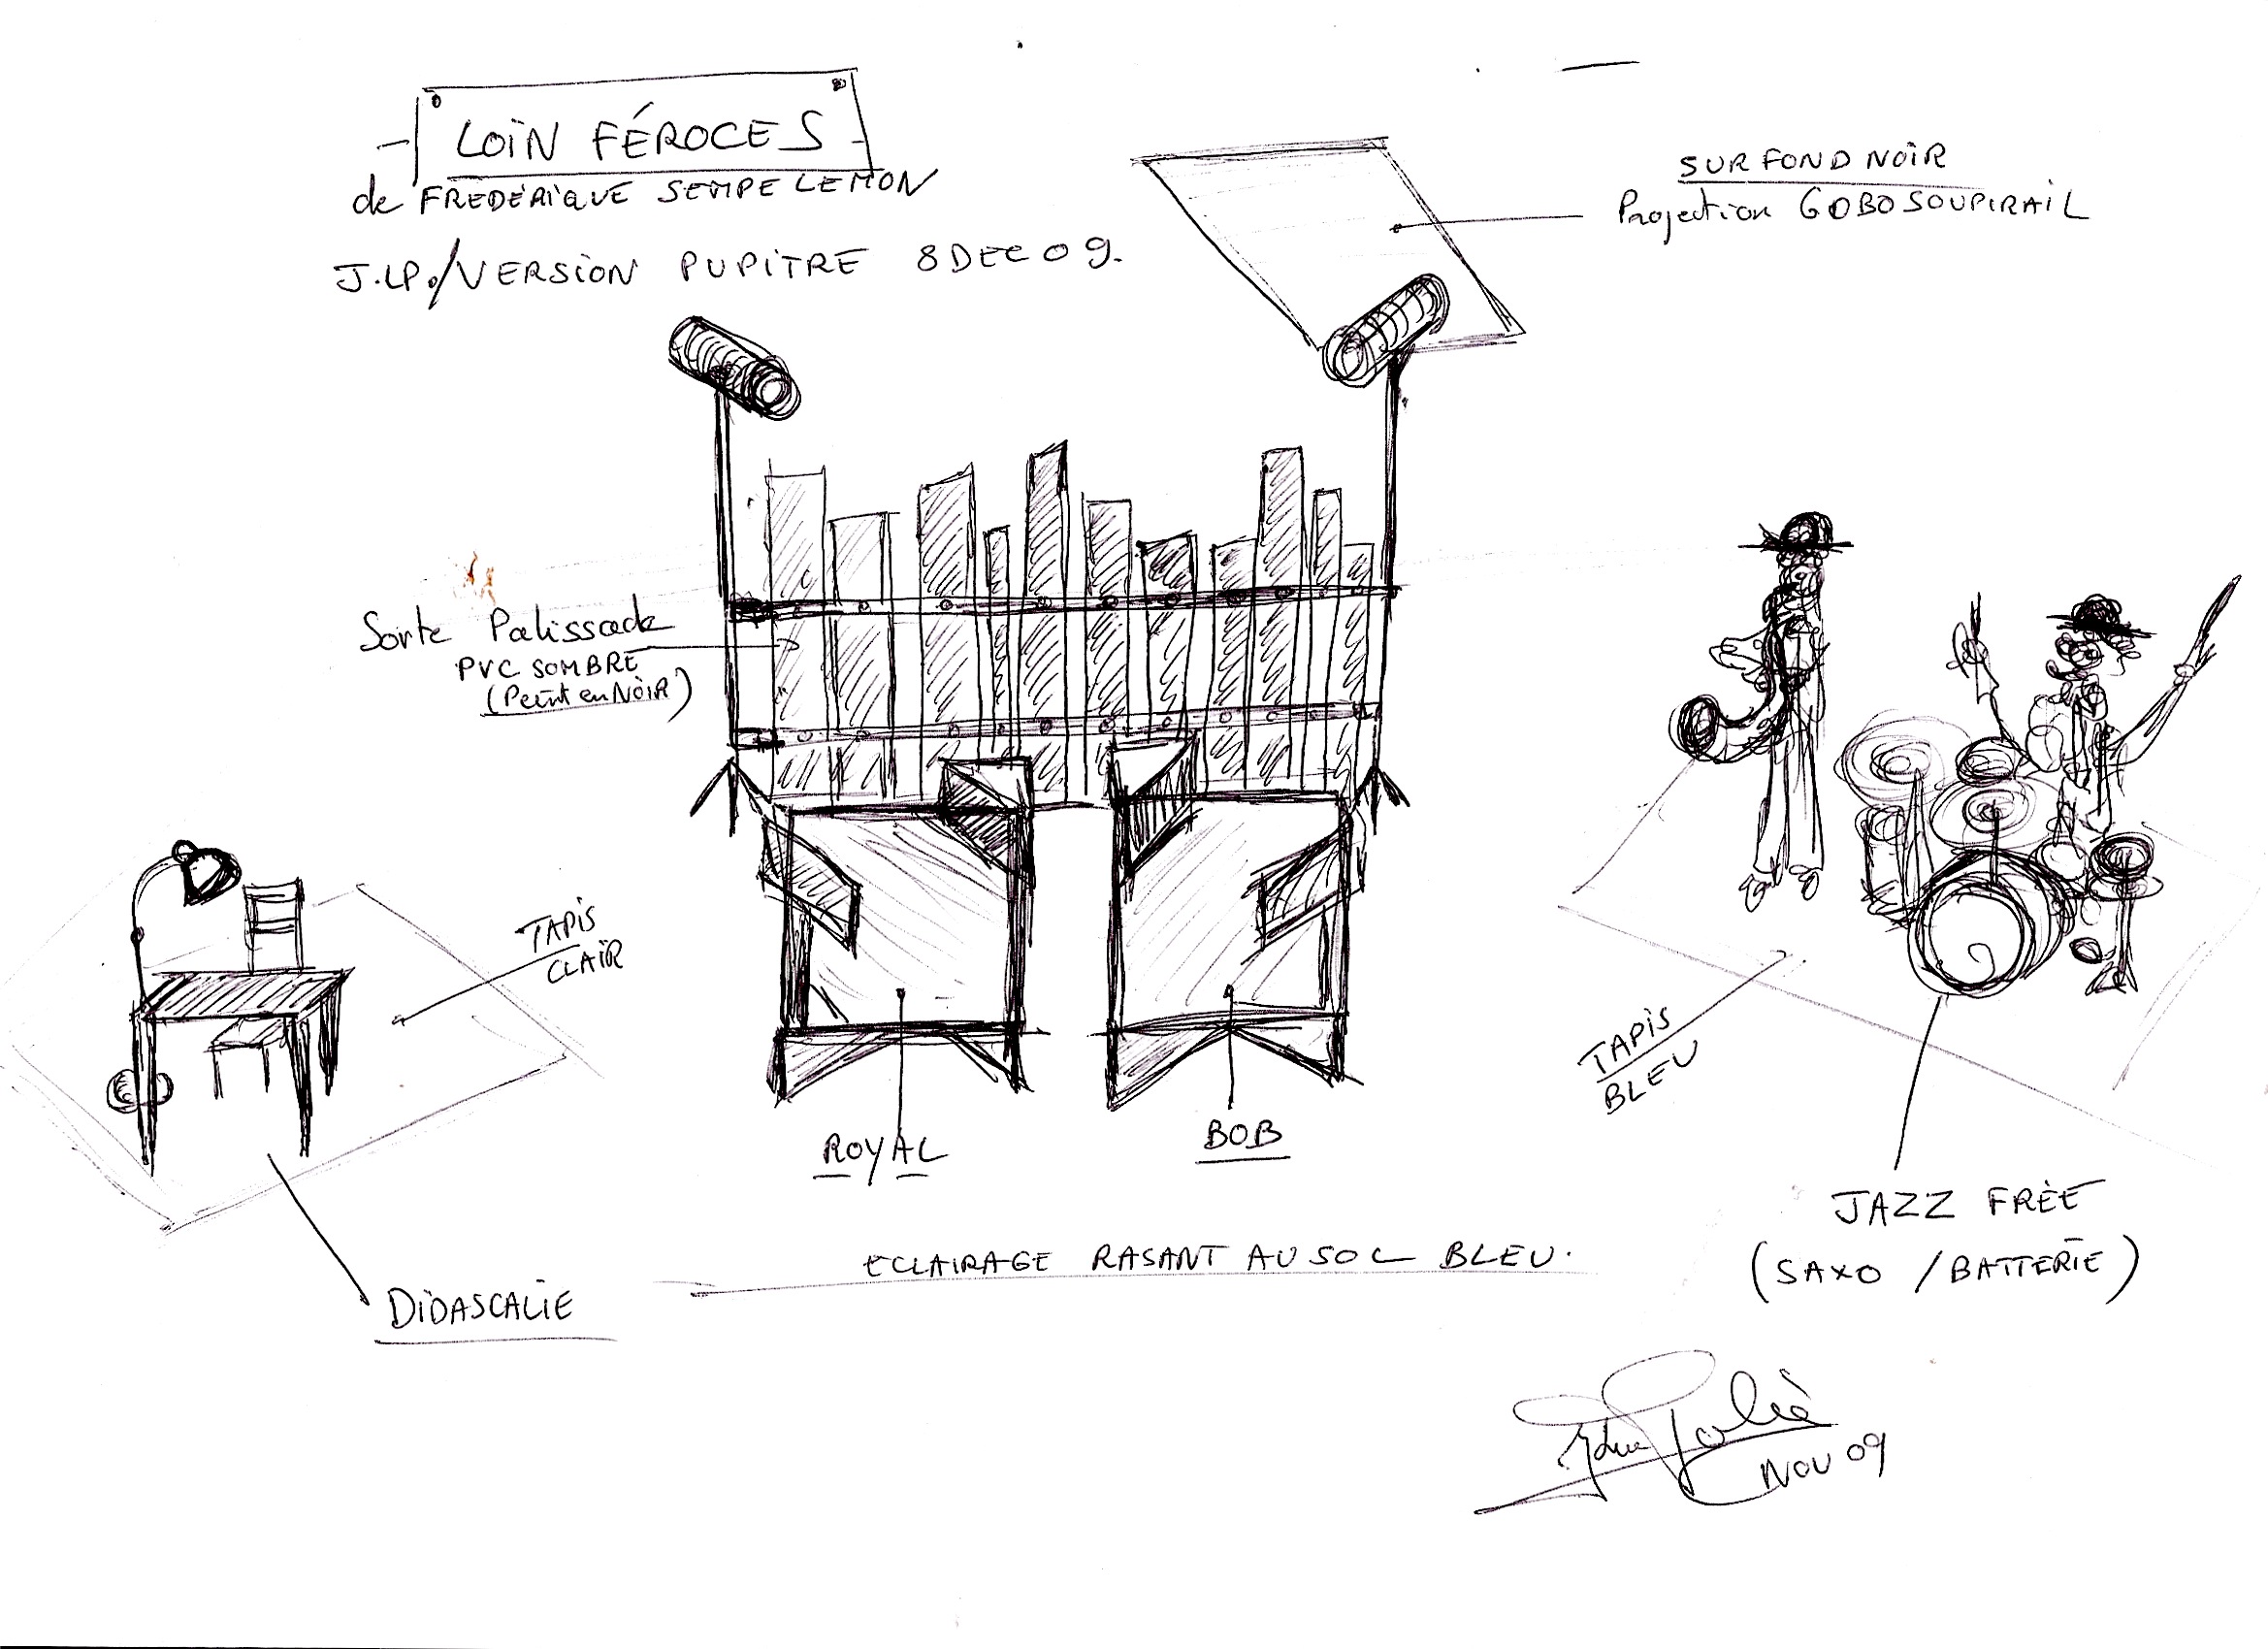 LOIN FÉROCES
de FRÉDÉRIQUE SEMPE LEMON
J.LP./VERSION PUPITRE 8 DEC 09.
SUR FOND NOIR
Projection GOBO SOUPIRAIL
Sorte Palissade
PVC SOMBRE
(Peint en NOIR)
TAPIS
CLAIR
TAPIS
BLEU
ROYAL
BOB
JAZZ FRÉE
(SAXO / BATTERIE)
ECLAIRAGE RASANT AU SOL BLEU.
DIDASCALIE
NOV 09